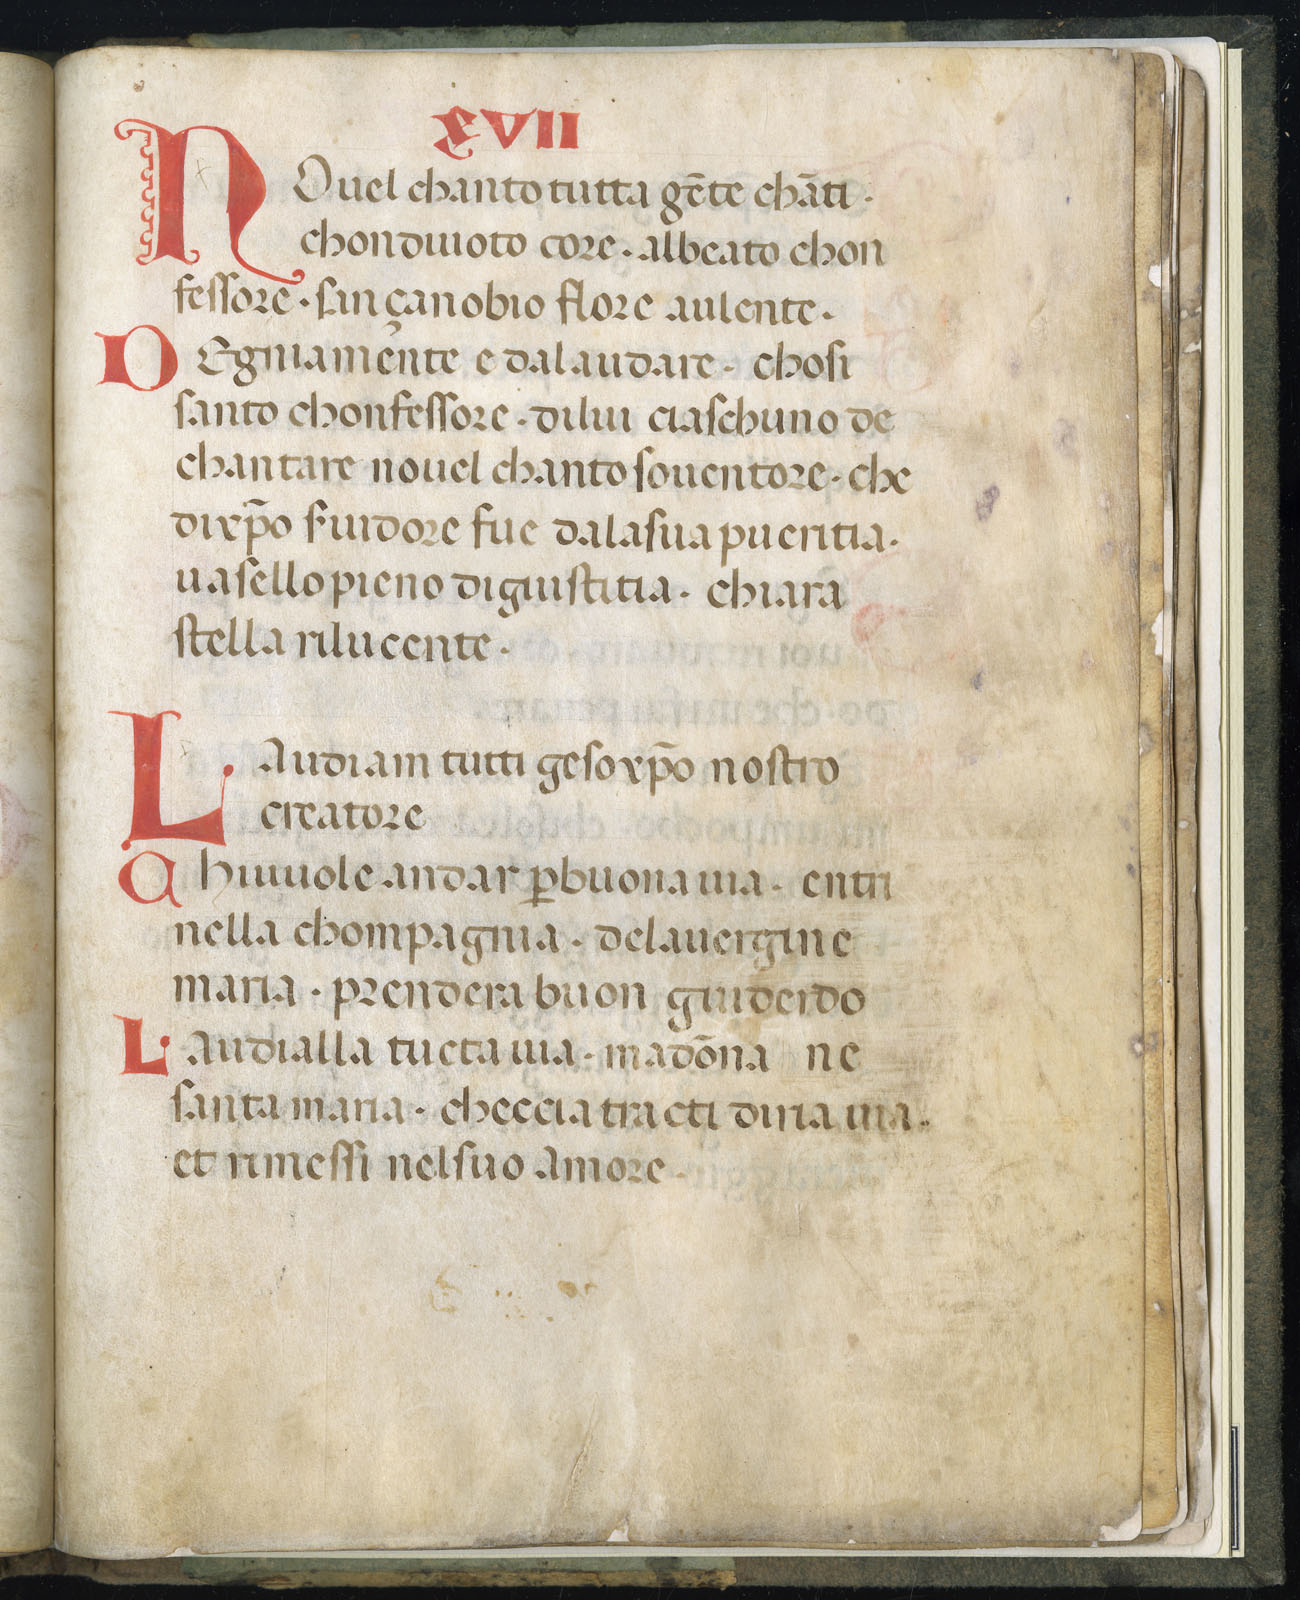 XVII
NOuel chanto tutta gēte chāti ·
chondiuoto core · albeato chon
fessore · san çanobio flore aulente ·
DEgniamente e dalaudare · chosi
santo chonfessore · dilui ciaschuno de
chantare nouel chanto souentore · che
dixp̄o s'uidore fue dalasua pueritia ·
uasello pieno digiustitia · chiara
stella rilucente ·
LAudiam tutti geso xp̄o nostro
creatore
Chiuuole andar ꝑbuona uia · entri
nella chompagnia · delauergine
maria · prendera buon giuderdo
LAudialla tucta uia · madōna ne
santa maria · checcia tracti diria uia ·
et rimessi nelsuo amore ·